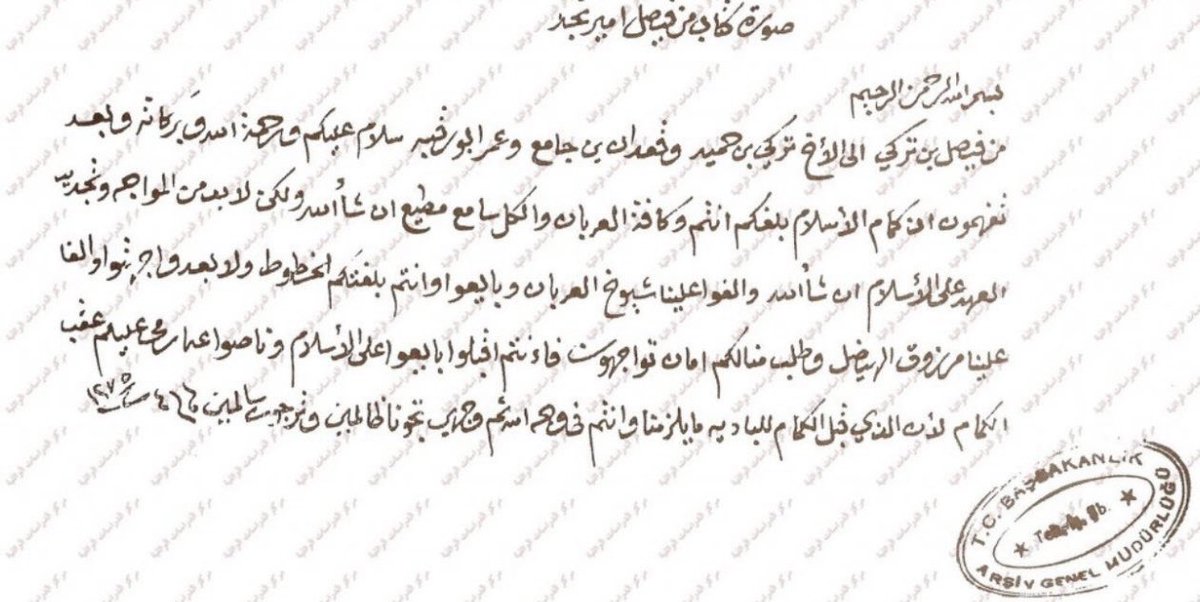 صورة كتاب من فيصل امير نجد
بسم الله الرحمن الرحيم
من فيصل بن تركي الى الأخ تركي بن حميد وفعدان بن جامع وعمر ابو رقبه سلام عليكم ورحمة الله وبركاته وبعد
تفهمون ان كمام الأسلام بلغكم انتم وكافة العربان والكل سامع مطيع ان شأالله ولكن لا بد من المواجه وتجديد
العهد على الأسلام ان شأالله والفوا علينا شيوخ العربان وبايعوا وانتم بلغتكم الخطوط ولا بعد واجهتوا والفا
علينا مرزوق الهيضل وطلب منا لكم امان تواجهون فاءنتم اقبلوا بايعوا على الأسلام وناصوا عليكم عقب
الكمام لأن الذي قبل الكمام للباديه ما يلزمنا وانتم في وجه الله ثم وجهي تجونا ظالمين وترجعون سالمين ١٢٧٥
T.C. BAŞBAKANLIK
ARŞİV GENEL MÜDÜRLÜĞÜ